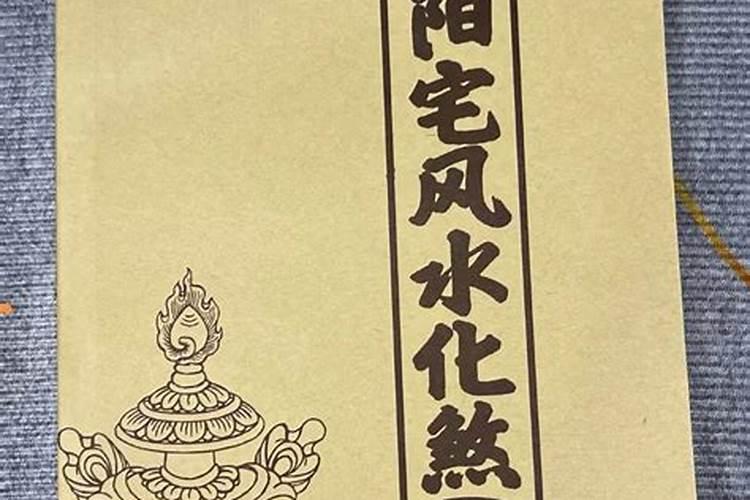 阳宅风水化煞